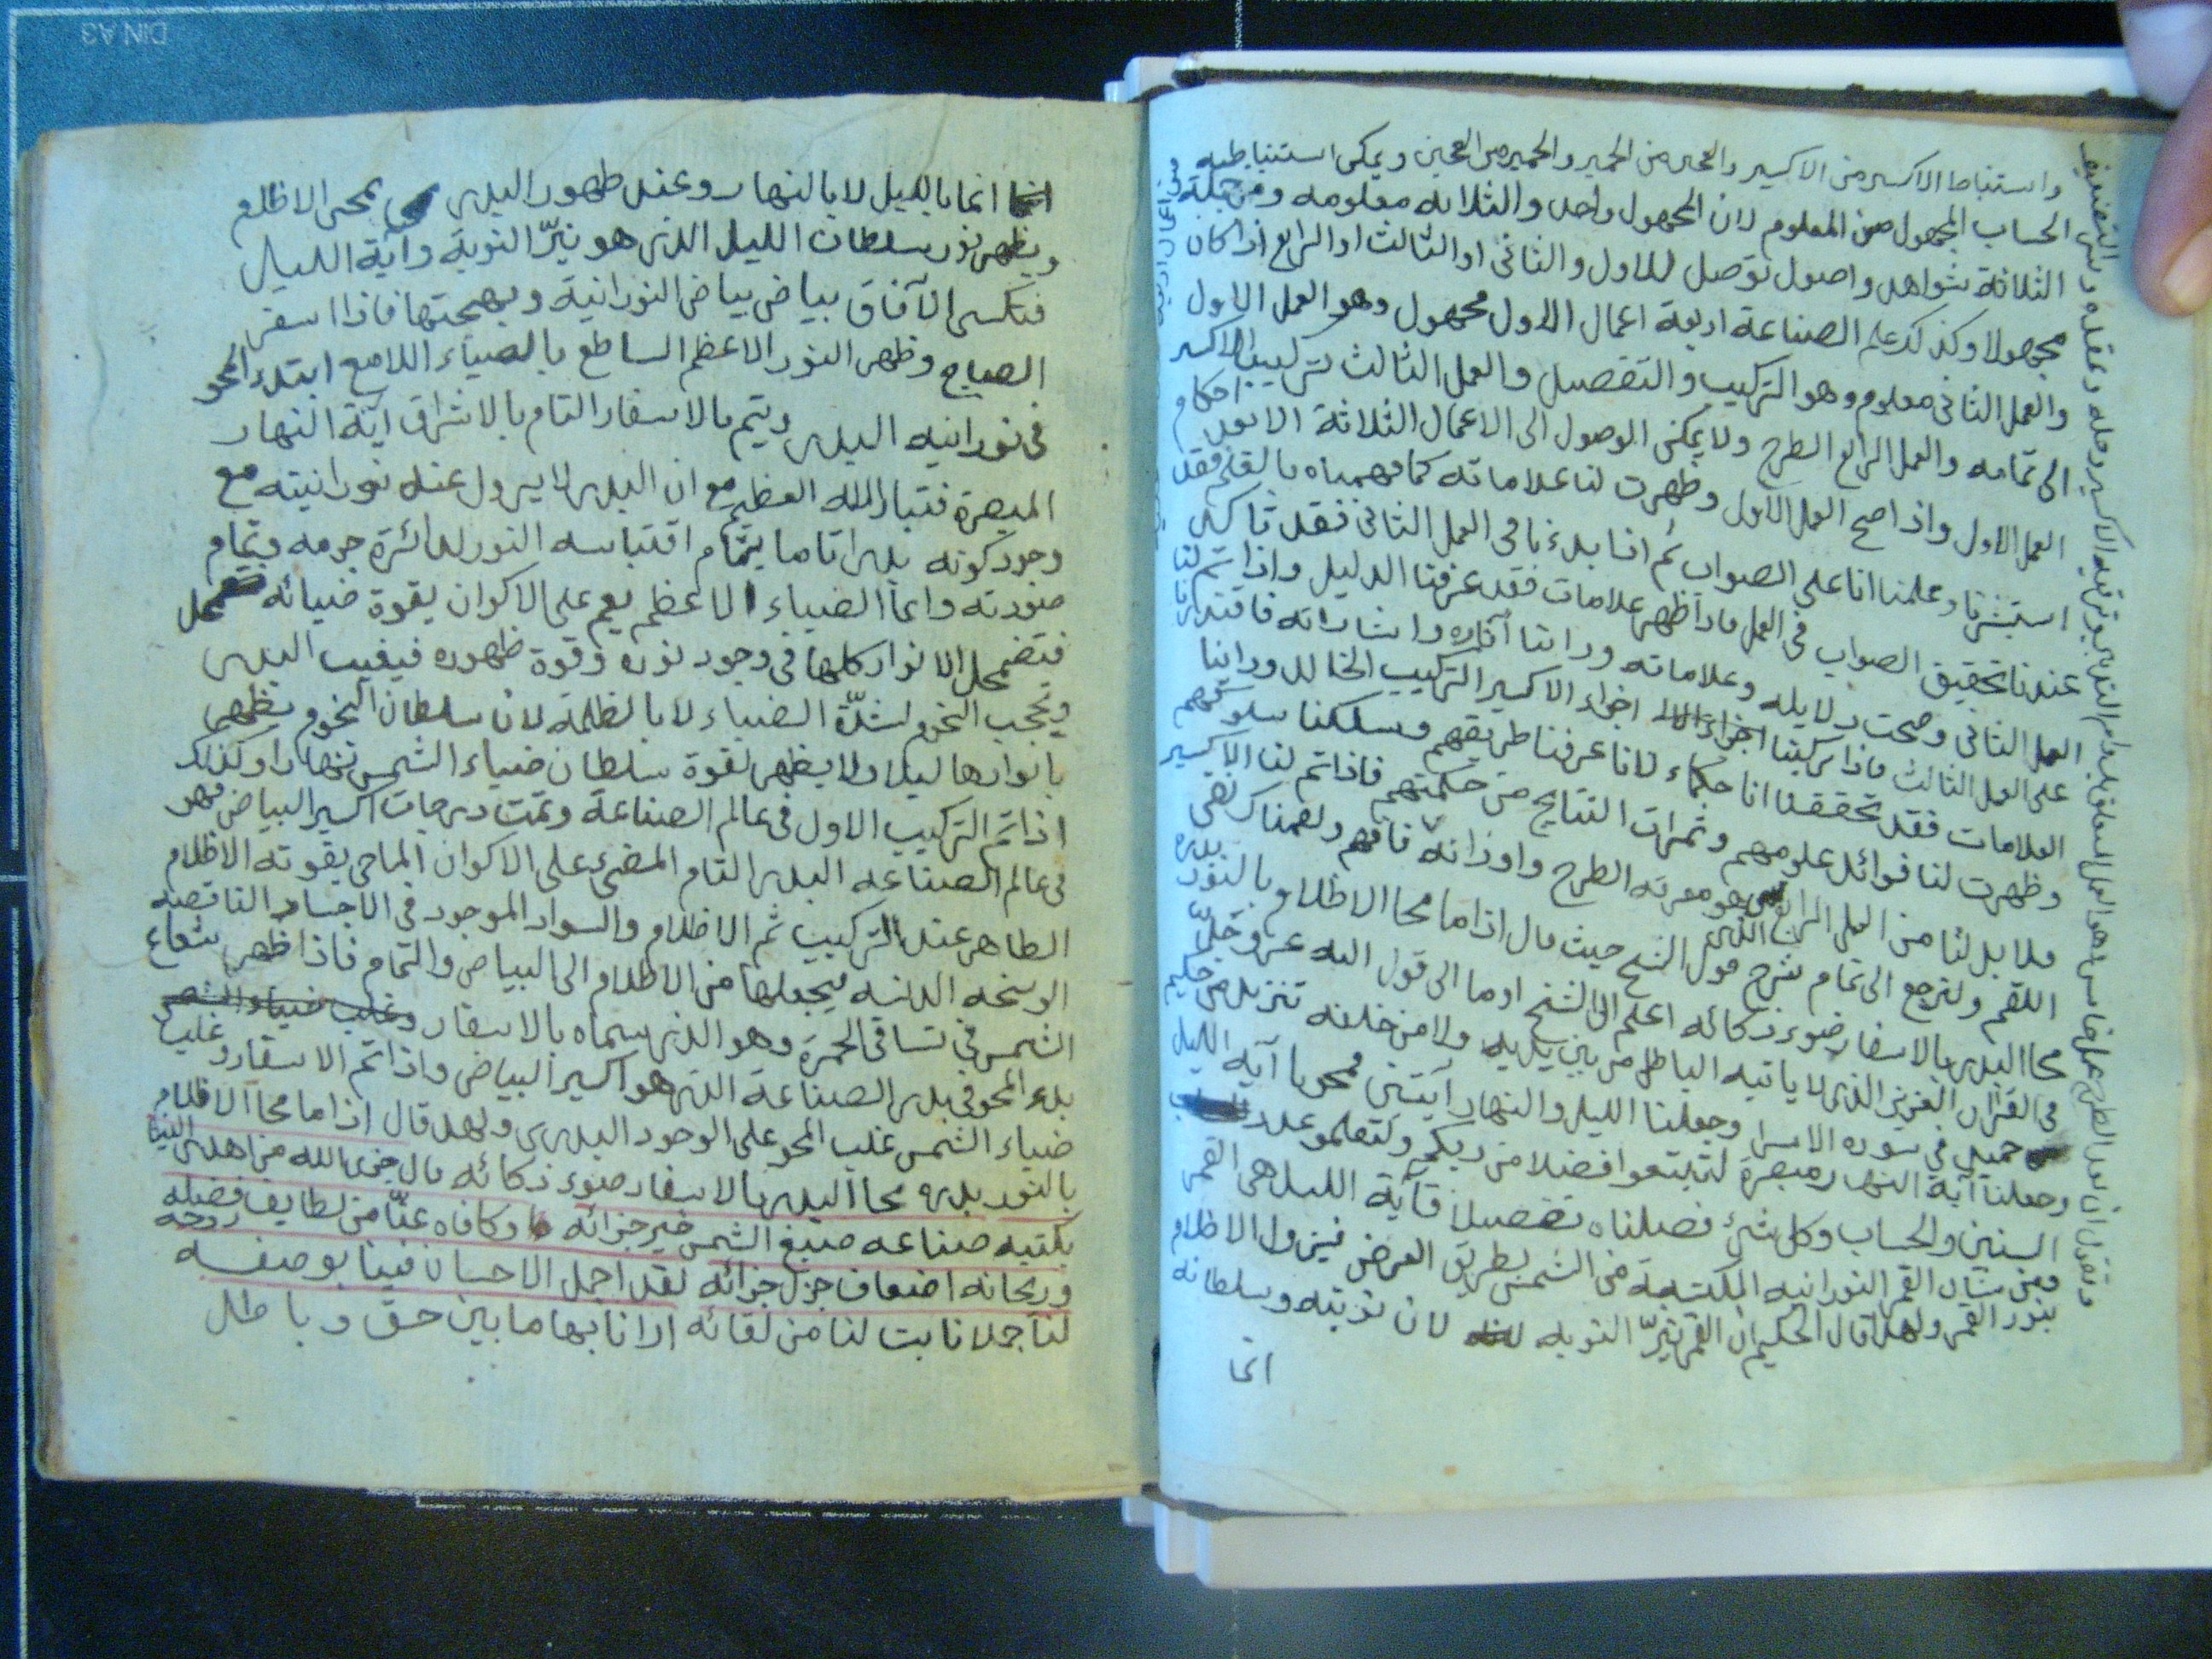 واستنباط الاكسير من الاكسير والخمير من الخمير والخمير من العجين ويمكن استنباطه من
الحساب المجهول من المعلوم لان المجهول واحد والثلاثه معلومه ومن جملة
الثلاثة شواهد واصول توصل للاول والثاني او الثالث او الرابع اذا كان
مجهولا وكذلك علم الصناعة اربعة اعمال الاول مجهول وهو العمل الاول
والعمل الثاني معلوم وهو التركيب والتفصيل والعمل الثالث تركيب الاكسير
الى تمامه والعمل الرابع الطرح ولا يمكن الوصول الى الاعمال الثلاثة الا بعد احكام
العمل الاول واذا صح العمل الاول وظهرت لنا علاماته كما فهمناه بالعلم فقد
استبشرنا وعلمنا انا على الصواب ثم انا بدءنا في العمل الثاني فقد تاكد
عندنا تحقيق الصواب في العمل فاذا ظهر علامات فقد عرفنا الدليل واذا تم لنا
العمل الثاني وصحت دلايله وعلاماته وراينا آثاره واشاراته فاقتدرنا
على العمل الثالث فاذا ركبنا اجزاء الاكسير التركيب الخالد وراينا
العلامات فقد تحققنا انا حكماء لانا عرفنا طريقهم وسلكنا سلوكهم
وظهرت لنا فوائد علومهم وثمرات النتايج من حكمتهم فاذا تم لنا الاكسير
فلا بد لنا من العمل الرابع الذي هو معرفة الطرح واوزانه فافهم ولهمنا
اللقم ولنرجع الى تمام شرح قول الشيخ حيث قال اذا ما محا الاظلام بالنور بدره
محا البدر بالاسفار ضوء ذكائه اعلم ان الشيخ اوما الى قول الله عز وجل
في القرآن العزيز الذي لا ياتيه الباطل من بين يديه ولا من خلفه تنزيل من حكيم
حميد في سورة الاسرا وجعلنا الليل والنهار آيتين فمحونا آية الليل
وجعلنا آية النهار مبصرة لتبتغوا فضلا من ربكم ولتعلموا عدد
السنين والحساب وكل شئ فصلناه تفصيلا فآية الليل هي القمر
ومن شان القمر النورانيه المكتسبة من الشمس بطريق العرض فيزول الاظلام
بنور القمر ولهذا قال الحكيم ان القمر نيرّ النوبه لان نوبته وسلطانه
انما
انما بالليل لا بالنهار وعند ظهور البدر يمحى الاظلام
ويظهر نور سلطان الليل الذي هو نيرّ النوبة وآية الليل
فتكسى الآفاق بياض بياض النورانية وبهجتها فاذا اسفر
الصباح وظهر النور الاعظم الساطع بالضياء اللامع ابتدء المحو
في نورانيه البدر ويتم بالاسفار التام بالاشراق آية النهار
المبصرة فتبارك الله العظيم مع ان البدر لا يزول عنه نورانيته مع
وجود كونه بدرا تاما بتمام اقتباسه النور لدائرة جرمه وبتمام
صورته وانما الضياء الاعظم يعم على الاكوان بقوة ضيائه
فتضمحل الانوار كلها في وجود نوره وقوة ظهوره فيغيب البدر
ويحجب النجوم لشدّة الضياء لا بالظلمة لان سلطان النجوم يظهر
بانوارها ليلا ولا يظهر لقوة سلطان ضياء الشمس نهارا وكذلك
اذا تم التركيب الاول في عالم الصناعة وتمت درجات اكسير البياض فهو
في عالم الصناعه البدر التام المضئ على الاكوان الماحى بقوته الاظلام
الطاهر عند التركيب ثم الاظلام والسواد الموجود في الاجساد الناقصه
الوسخه الدنسه فيجعلها من الاظلام الى البياض والتمام فاذا ظهر شعاع
الشمس في تساقى الحمرة وهو الذي سماه بالاسفار وغلب ضياء الشمس
بدء المحو في بدر الصناعة الذي هو اكسير البياض واذا تم الاسفار وغلب
ضياء الشمس غلب المحو على الوجود البدرى ولهذا قال اذا ما محا الاظلام
بالنور بدره محا البدر بالاسفار ضوء ذكائه قال جزى الله من اهدى الينا
بكتبه صناعه صبغ الشمس خير جزائه وكافاه عنّا من لطايف فضله
وريحانه اضعاف جزل جزائه لقد اجمل الاحسان فينا بوصفه
لنا جملا نابت لنا من لقائه ارانا بها ما بين حق وباطل